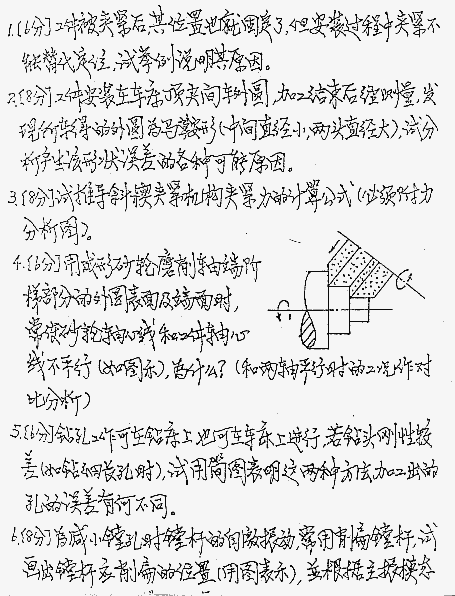 1.(6分)工件被夹紧后,其位置也就固定了,但安装过程中夹紧不
能替代定位,试举例说明其原因。
2.(8分)工件安装在车床顶夹间车外圆,加工结束后经测量,发
现所车得的外圆为马鞍形(中间直径小,两头直径大),试分
析产生该形状误差的各种可能原因。
3.(8分)试推导斜楔夹紧机构夹紧力的计算公式(必须附力
分析图)。
4.(6分)用成形砂轮磨削轴端阶
梯部分的外圆表面及端面时,
常使砂轮轴心线和工件轴心
线不平行(如图示),为什么?(和两轴平行时的工况作对
比分析)
5.(6分)钻孔工作可在钻床上也可在车床上进行,若钻头刚性较
差(如钻细长孔时),试用简图表明这两种方法加工出的
孔的误差有何不同。
6.(8分)为减小镗孔时镗杆的自激振动,常用削扁镗杆,试
画出镗杆应削扁的位置(用图表示),并根据主振模态